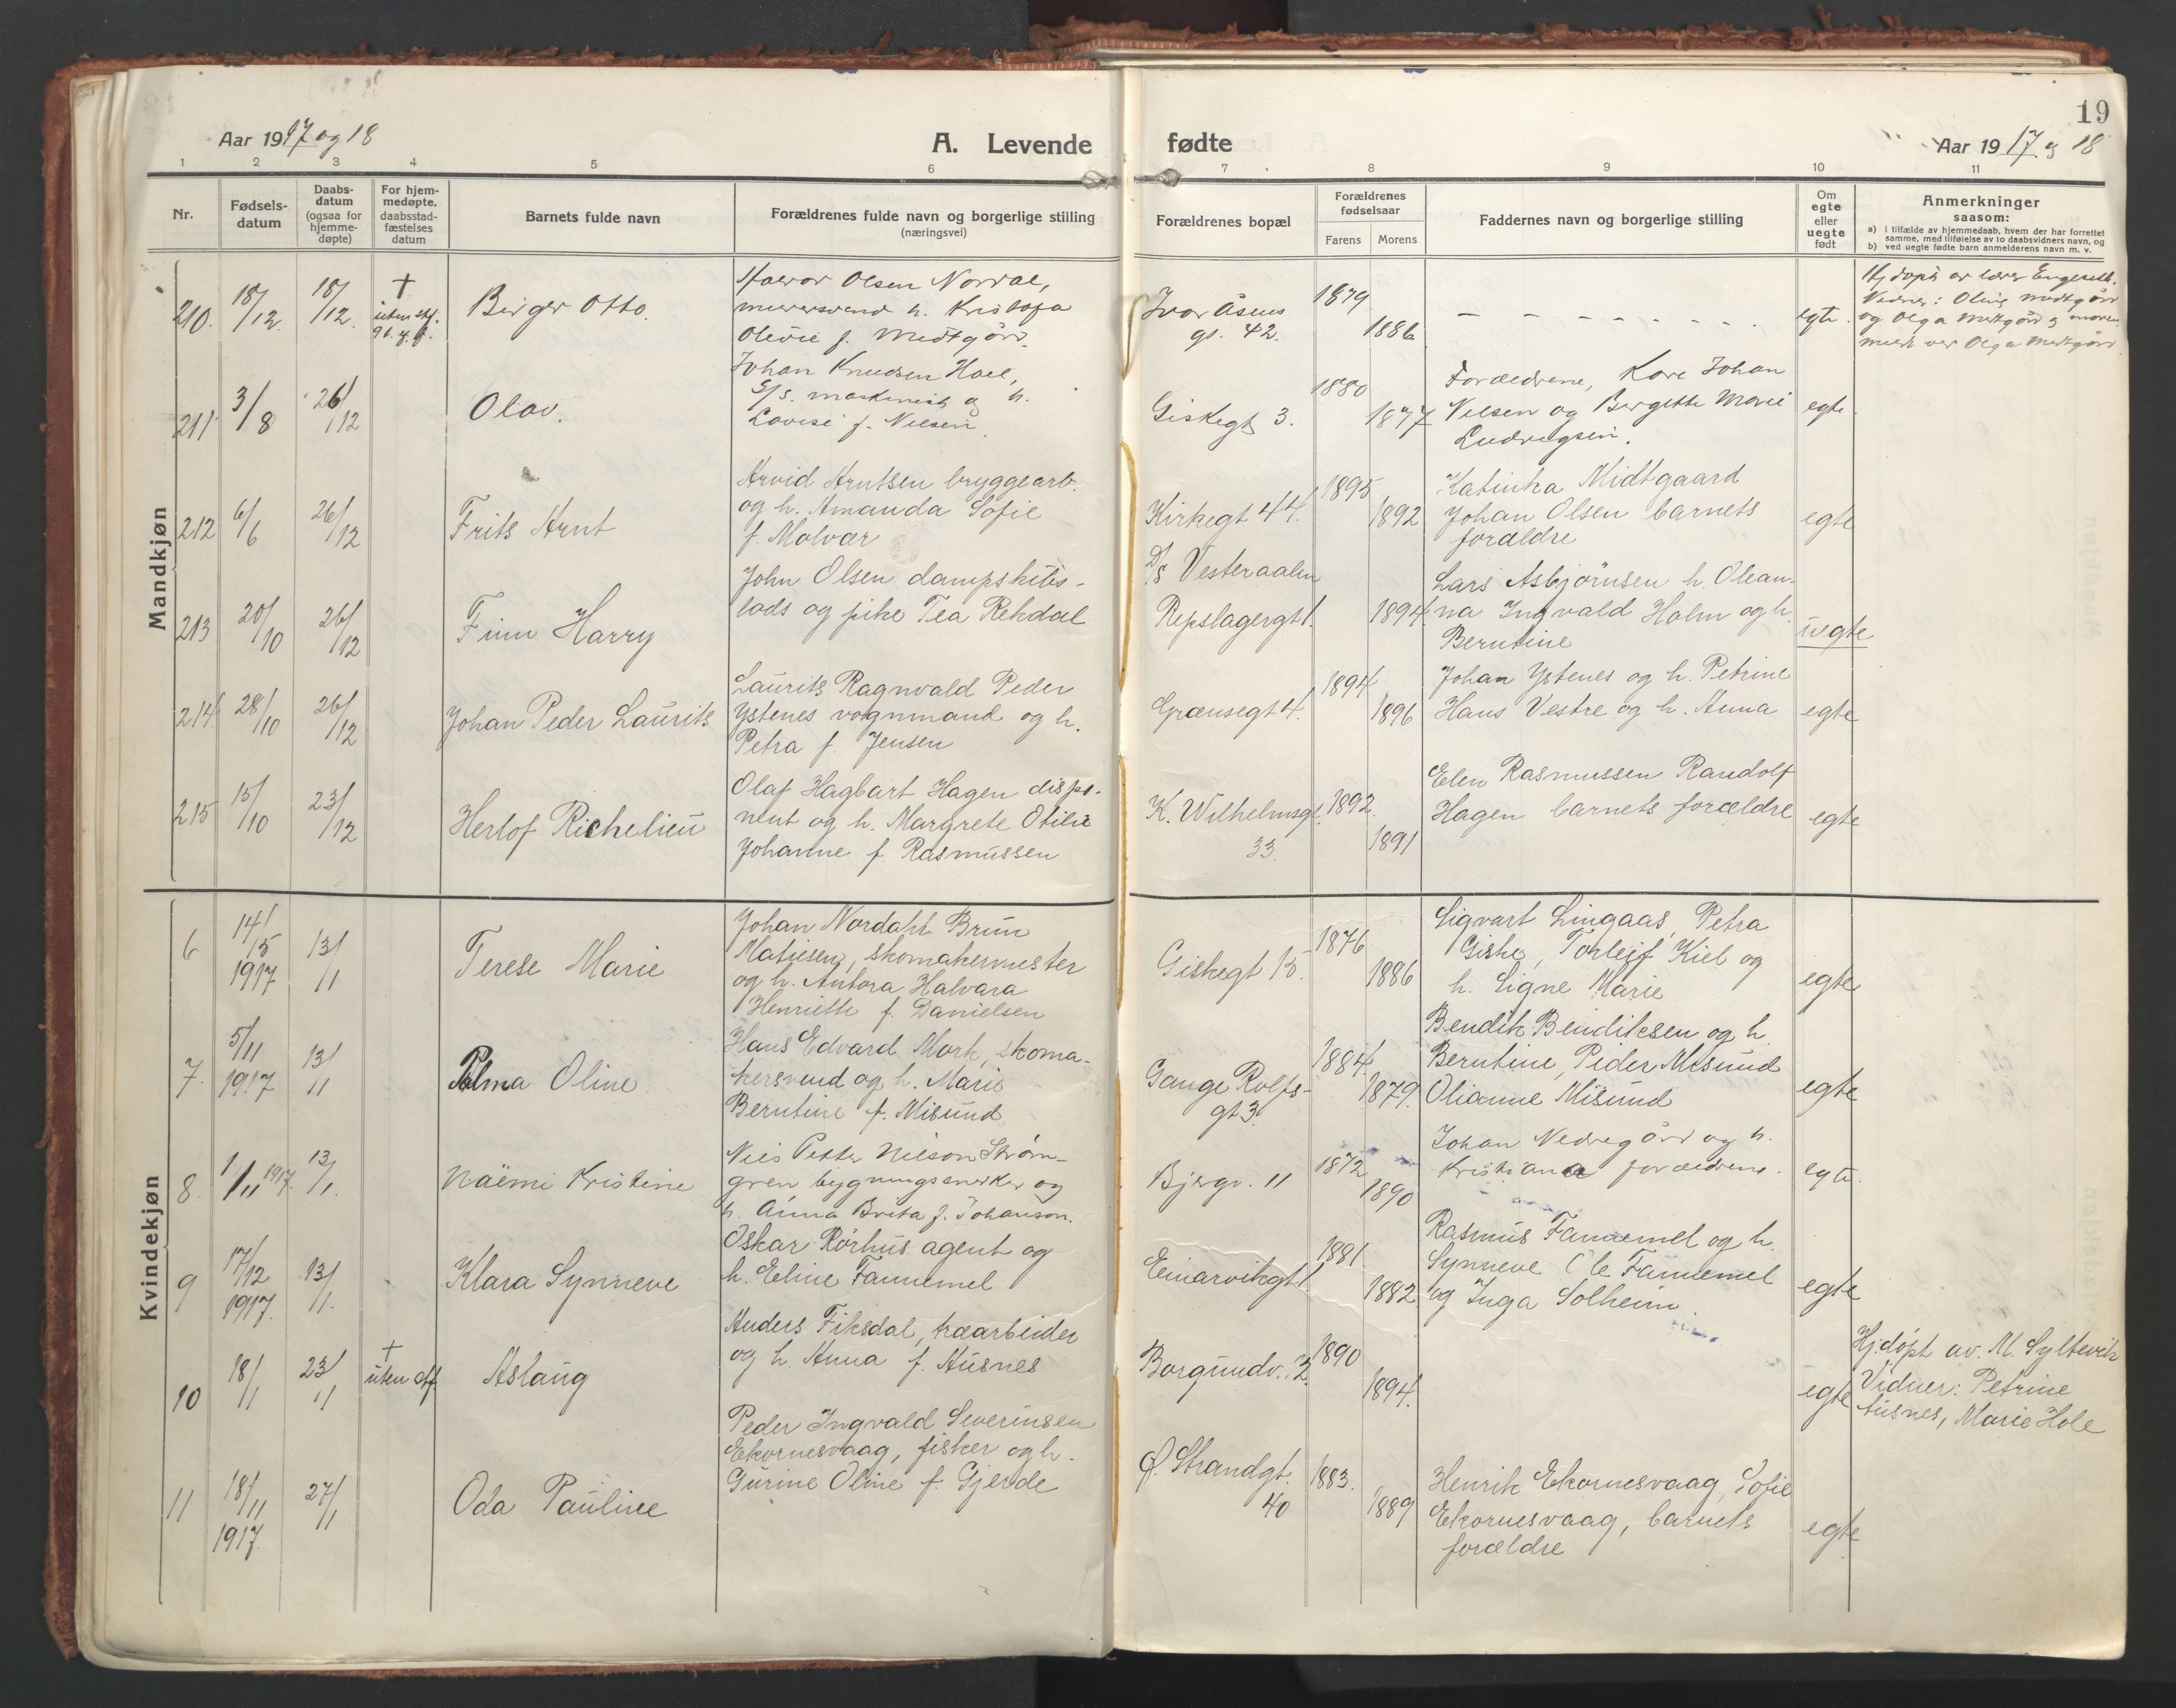 19
Aar 1917 og 18
A. Levende fødte
Aar 1917 og 18
1 2 3 4 5 6 7 8 9 10 11
Nr.
Fødsels-
datum
Daabs-
datum
(ogsaa for
hjemme-
døpte)
For hjem-
medøpte,
daabsstad-
fæstelses
datum
Barnets fulde navn
Forældrenes fulde navn og borgerlige stilling
(næringsvei)
Forældrenes bopæl
Forældrenes
fødselsaar
Farens Morens
Faddernes navn og borgerlige stilling
Om
egte
eller
uegte
født
Anmerkninger
saasom:
a) i tilfælde av hjemmedaab, hvem der har forrettet
samme, med tilføielse av to daabsvidners navn, og
b) ved uegte fødte barn anmelderens navn m. v.
Mandkjøn
210. 18/12. 18/12. † uten stf.
Birger Otto.
Halvor Olsen Nordal,
murersvend h. Kristofa
Olevie f. Midtgård.
Ivar Åsens
gt. 42.
1879
1886
egte.
Hj.døpt av lærer
og Olga Midtgård
211 3/8 26/12
Olav.
Johan Knudsen Hoel,
D/S. maskinist og h.
Lovise f. Nilsen.
Giskegt 3.
1880
1877
Forældrene, Kare Johan
Nilsen og Bergitte Marie
Ludvigsen.
egte.
212 6/6 26/12
Frits Arnt
Arvid Arntsen bryggearb.
og h. Amanda Sofie
f. Malvær
Kirkegt 44.
1895
1892
Katinka Midtgaard
Johan Olsen barnets
forældre
egte
213 20/10 26/12
Finn Harry
John Olsen dampskibs-
lods og pike Tea Rekdal
D/S Vesteraalen
Repslagergt 1.
1894
Lars Asbjørnsen h. Olean-
na Ingvald Holm og h.
Berntine
uegte
214 28/10 26/12
Johan Peder Laurits
Laurits Ragnvald Peder
Ystenes vognmand og h.
Petra f. Jensen
Grænsegt 4.
1894
1896
Johan Ystenes og h. Petrine
Hans Vestre og h. Anna
egte
215 15/10 23/12
Herlof Richelieu
Olaf Hagbart Hagen dispo-
nent og h. Margrete Otilie
Johanne f. Rasmussen
K. Wilhelmsgt.
33.
1892.
1891
Elen Rasmussen Randolf
Hagen barnets forældre
egte
Kvindekjøn
6 14/5 1917 13/1
Terese Marie
Johan Nordahl Brun
Matiesen, skomakermester
og h. Antora Halvara
Henriette f. Danielsen
Giskegt 15.
1876
1886
Sigvart Lingaas, Petra
Giske, Torleif Kiel og
h. Signe Marie
egte
7. 5/11 1917 13/1
Palma Oline
Hans Edvard Mork, skoma-
kersvend og h. Marie
Berntine f. Misund
Gange Rolfs-
gt 3.
1884
1879.
Bendik Bendiksen og h.
Berntine, Peder Misund
Olianne Misund
egte
8. 1/11 1917. 13/1.
Naëmi Kristine
Nils Petter Nilson Strøm-
gren bygningssnekker og
h. Anna Brita f. Johanson.
Bjergv. 11
1872
1890
Johan Nedregård og h.
Kristiana forældrene.
egte.
9 17/12 1917. 13/1.
Klara Synneve
Oskar Rörhus agent og
h. Eline Fannemel
Einarvikgt 1.
1881.
1882.
Rasmus Fannemel og h.
Synneve Ole Fannemel
og Inga Solheim.
egte
10 18/1 23/1 † uten stf.
Aslaug
Anders Fiksdal, træarbeider
og h. Anna f. Ausnes
Borgundv. 2.
1890
1894.
egte
Hj.døpt av. M. Syltevik
Vidner: Petrine
Ausnes, Marie Hole
11 18/11 1917. 27/1
Oda Pauline
Peder Ingvald Severinsen
Ekornesvaag, fisker og h.
Gurine Oline f. Gjerde
Ø. Strandgt.
40
1883.
1889
Henrik Ekornesvaag, Sofie
Ekornesvaag, barnets
forældre
egte